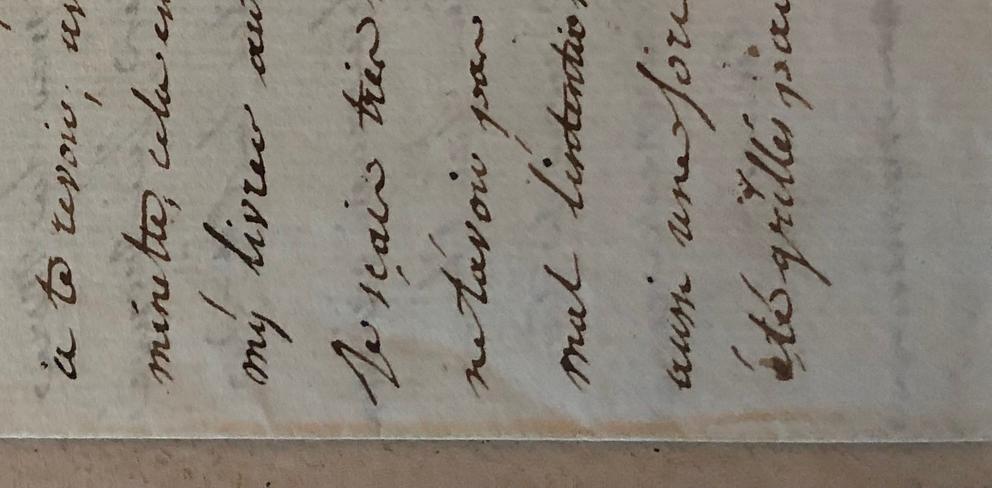 a te revoir, 
minette, cela
my livrer
Je sçai bien
ne t'avoir pas
mal l'intention
aussi une
été grillés